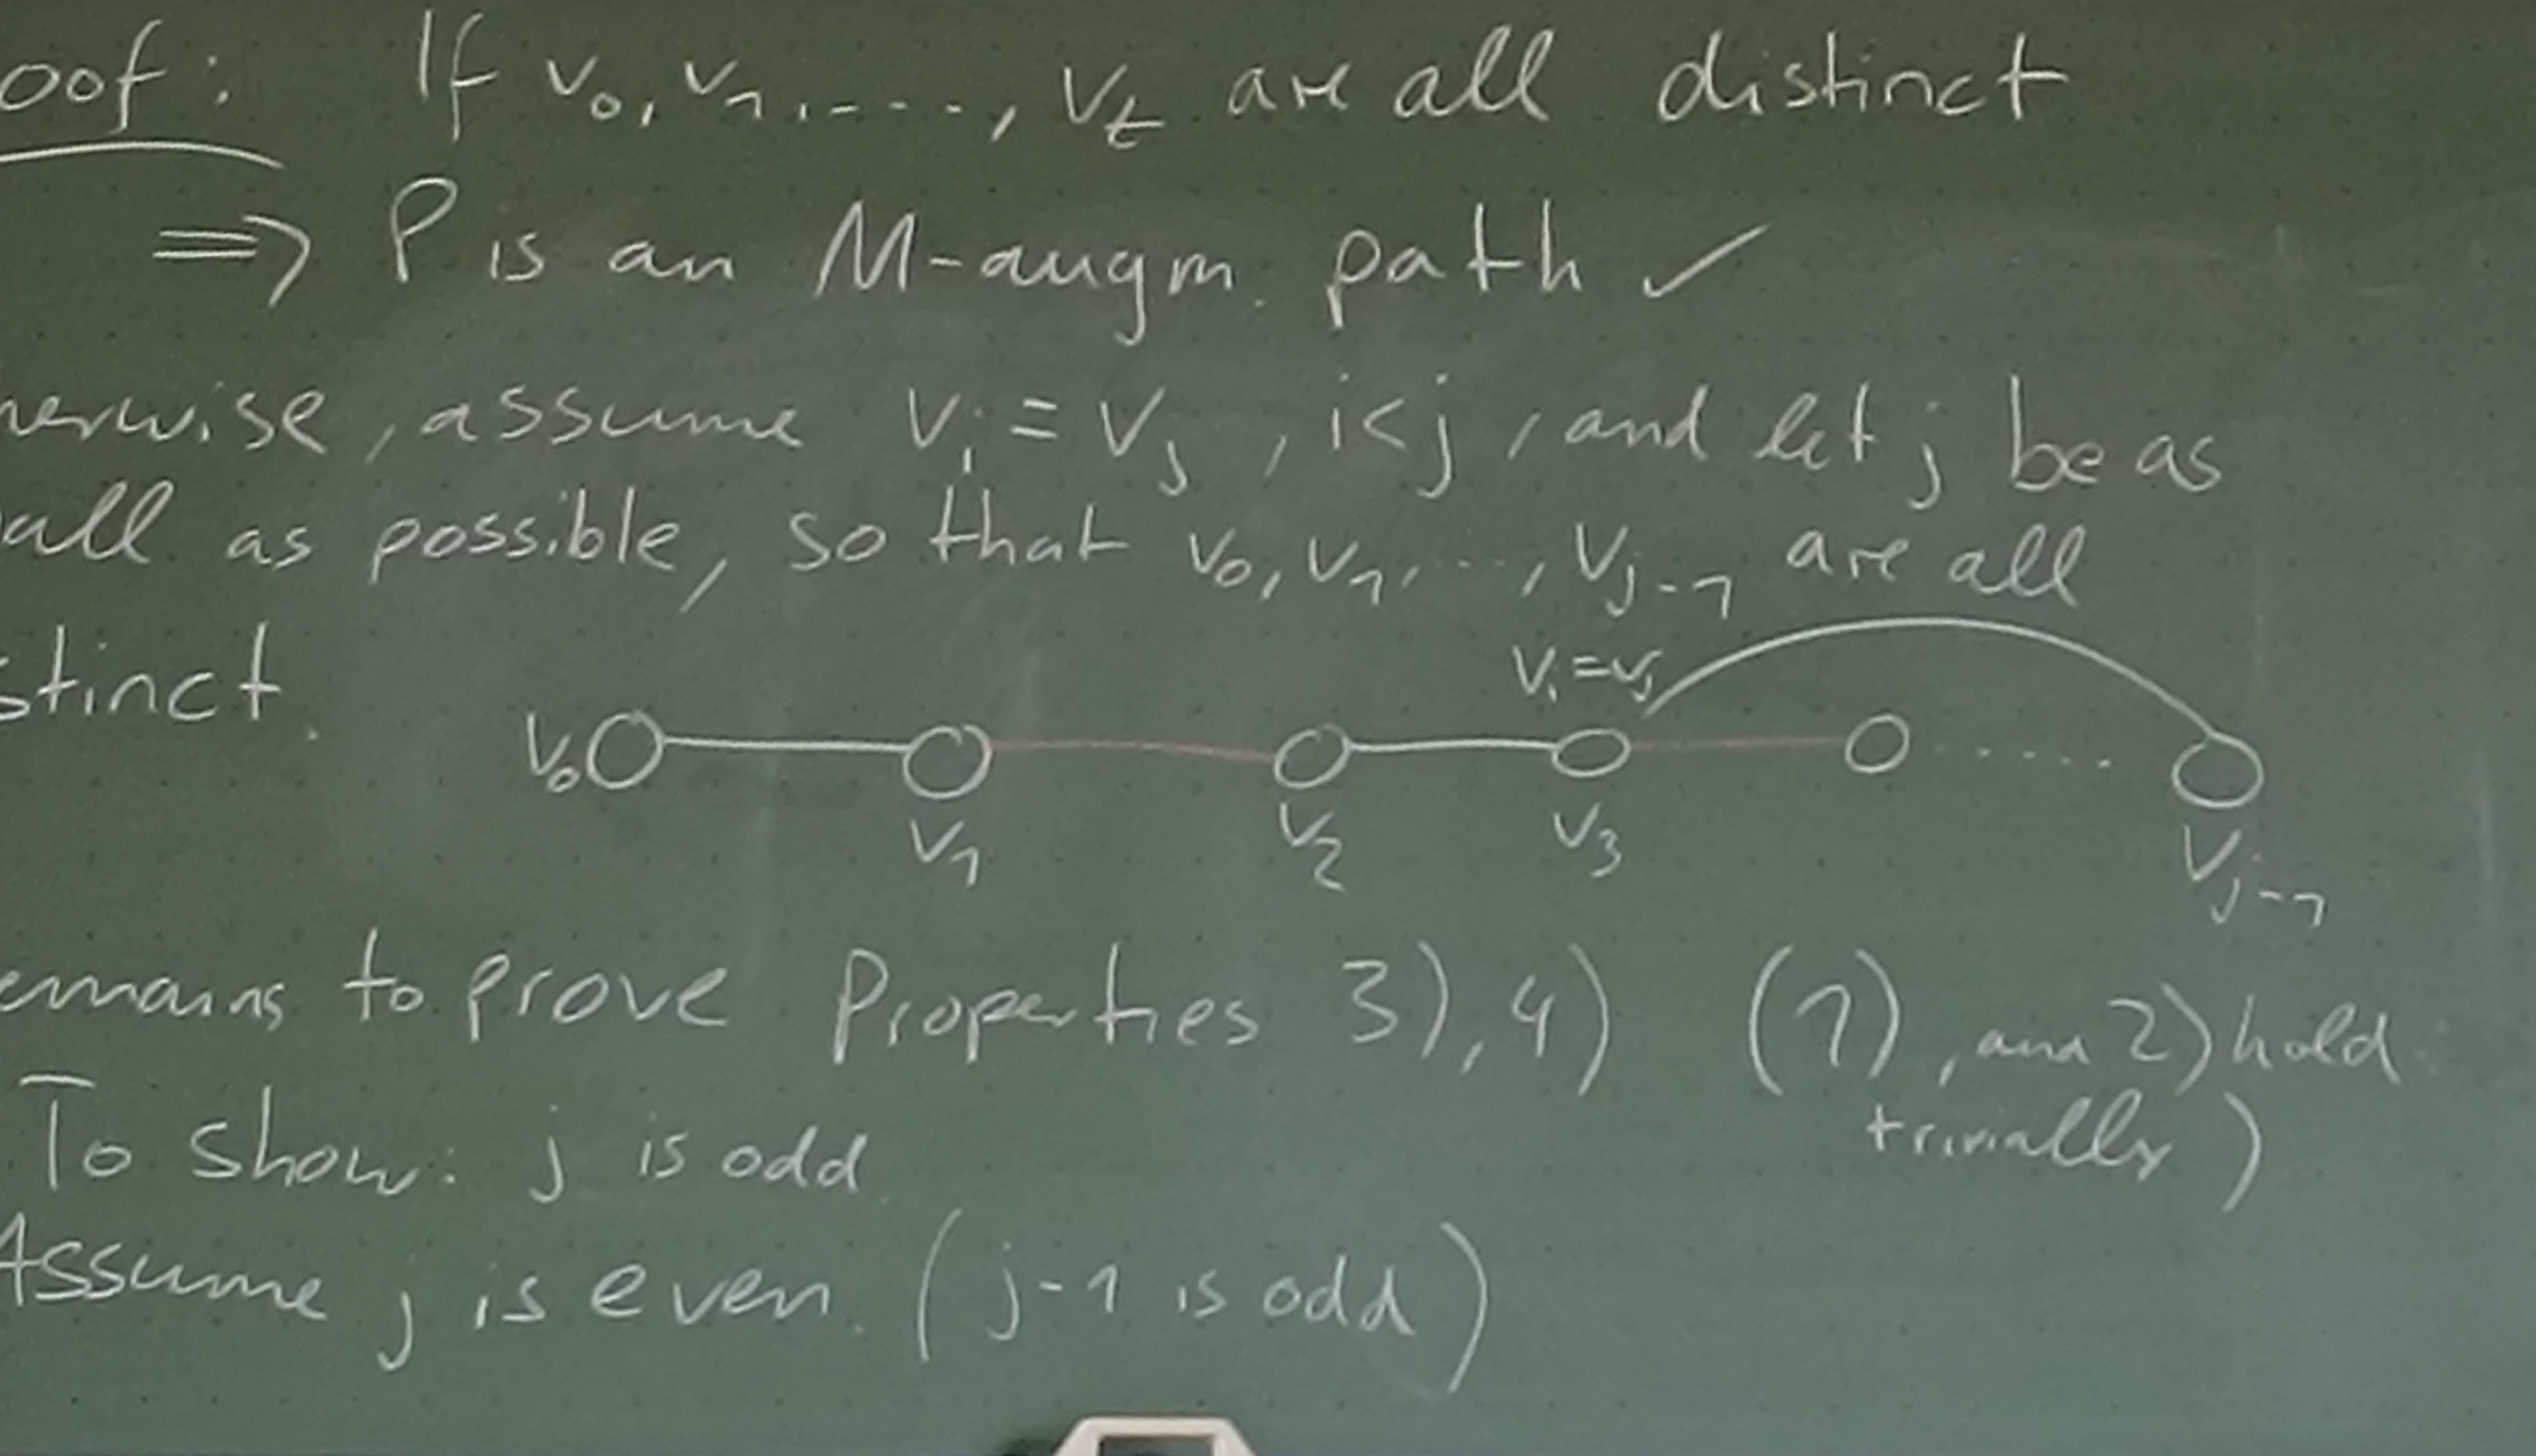 oof: If v₀, v₁, ..., v_t are all distinct
⇒ P is an M-augm. path ✓
herwise, assume v_i = v_j, i<j, and let j be as
all as possible, so that v₀, v₁, ..., v_{j-1} are all
stinct.
v_i = v_j
v₀ v₁ v₂ v₃ v_{j-1}
emains to prove Properties 3), 4) (1), and 2) hold
trivially)
To show: j is odd.
Assume j is even. (j-1 is odd)